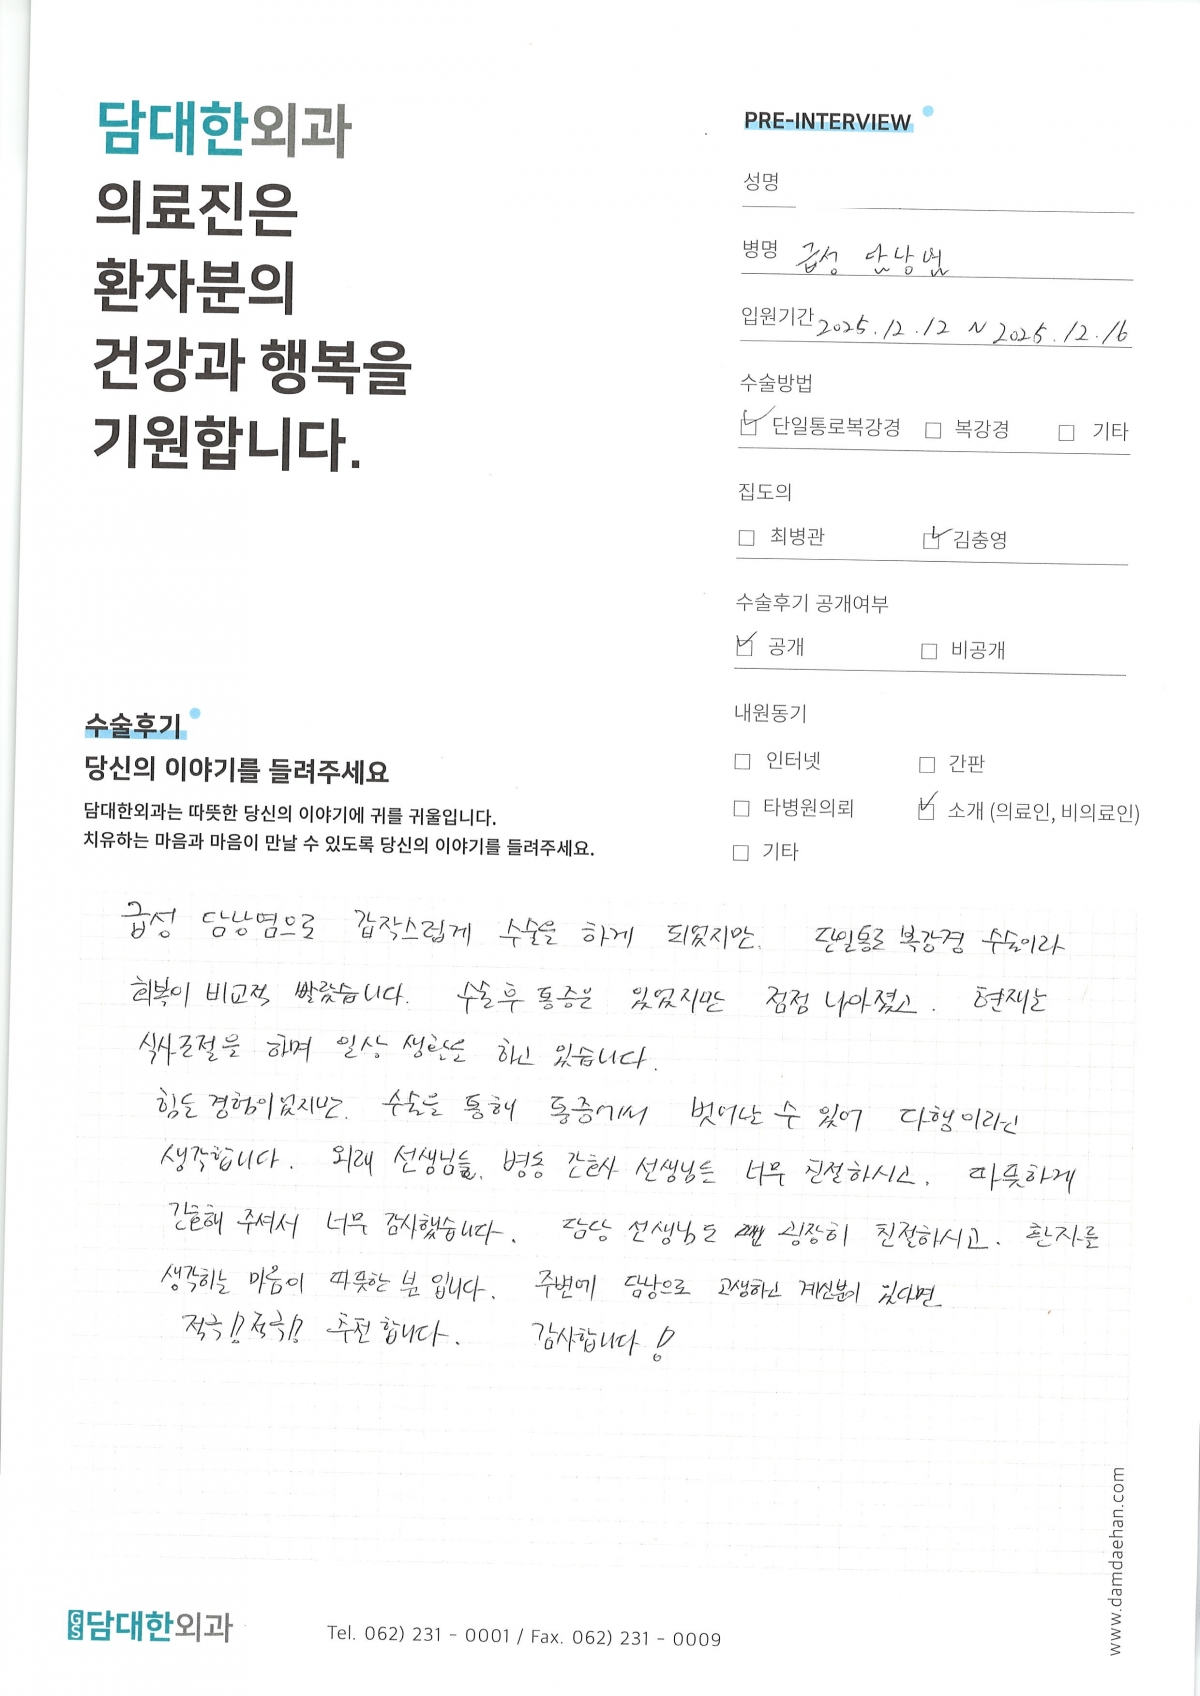 담대한외과
의료진은
환자분의
건강과 행복을
기원합니다.
PRE-INTERVIEW
성명
병명 급성 담낭염
입원기간 2025.12.12 ~ 2025.12.16
수술방법
☑ 단일통로복강경 □ 복강경 □ 기타
집도의
□ 최병관 ☑ 김충영
수술후기 공개여부
☑ 공개 □ 비공개
내원동기
□ 인터넷 □ 간판
□ 타병원의뢰 ☑ 소개 (의료인, 비의료인)
□ 기타
수술후기
당신의 이야기를 들려주세요
담대한외과는 따뜻한 당신의 이야기에 귀를 귀울입니다.
치유하는 마음과 마음이 만날 수 있도록 당신의 이야기를 들려주세요.
급성 담낭염으로 갑작스럽게 수술을 하게 되었지만. 단일통로 복강경 수술이라
회복이 비교적 빨랐습니다. 수술후 통증은 있었지만 점점 나아졌고. 현재는
식사조절을 하며 일상 생활도 하고 있습니다.
힘든 경험이었지만. 수술을 통해 통증에서 벗어날 수 있어 다행이라고
생각합니다. 외래 선생님들, 병동 간호사 선생님들 너무 친절하시고. 따뜻하게
간호해 주셔서 너무 감사했습니다. 담당 선생님도 굉장히 친절하시고. 환자를
생각하는 마음이 따뜻한 분 입니다. 주변에 담낭으로 고생하고 계신분이 있다면
적극!! 적극!! 추천 합니다. 감사합니다!
GS담대한외과
Tel. 062) 231 - 0001 / Fax. 062) 231 - 0009
www.damdaehan.com